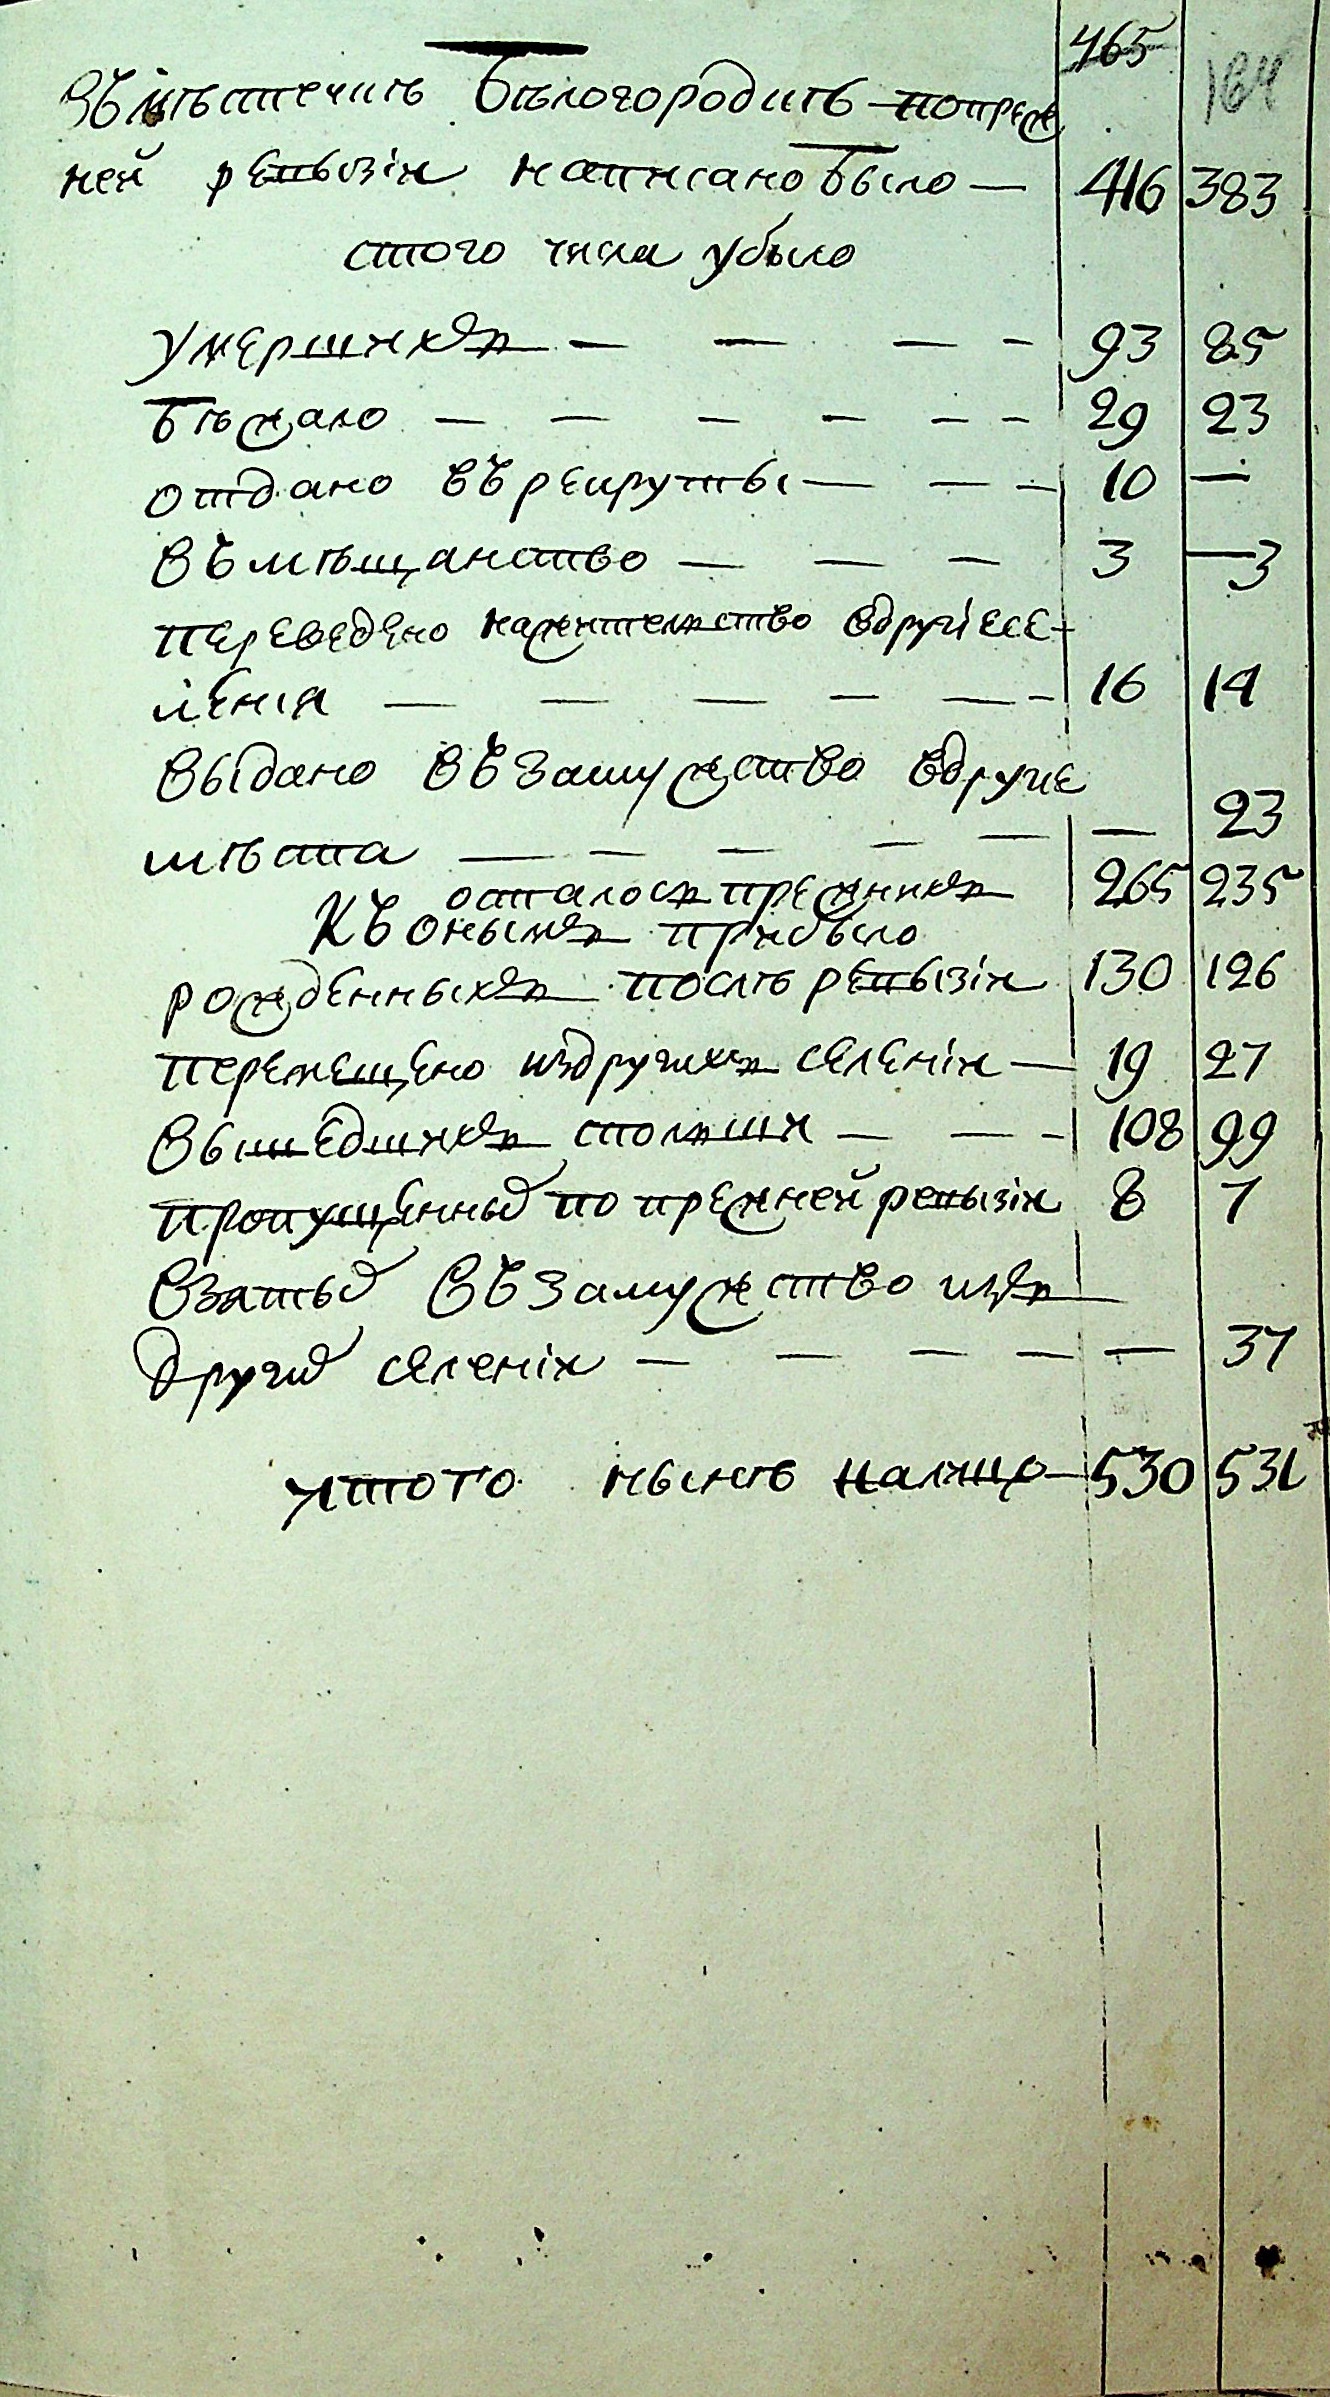 465 164
Въ мѣстечкѣ Бѣлогородкѣ по преж
ней ревизіи написано было — 416 383
с того числа убыло
умершихъ — — — — 93 85
бѣжало — — — — — — 29 23
отдано въ рекруты — — — 10 —
въ мѣщанство — — — 3 — 3
переведено на жительство в другіе се-
ленія — — — — — — 16 14
выдано въ замужство в другие
мѣста — — — — — — 23
осталось прежнихъ 265 235
Къ онымъ прибыло
рожденныхъ послѣ ревизіи 130 126
перемещено из другихъ селеніи — 19 27
вышедшихъ с польши — — — 108 99
пропущенныхъ по прежней ревизіи 8 7
взятыхъ въ замужство изъ
другихъ селеніи — — — — — 37
итого нынѣ налицо — 530 531